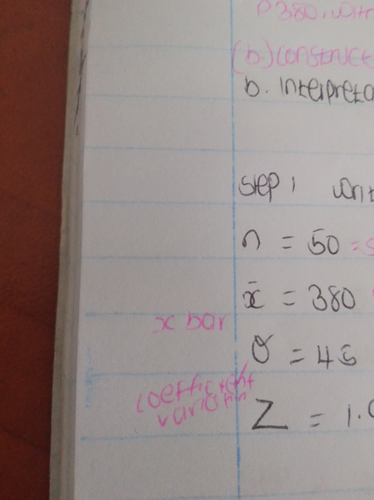 P380, with
(b.) construct
b. interpreta
step 1 writ
n = 50 = s
x̄ = 380
x bar
σ = 45
coefficient
variation
Z = 1.